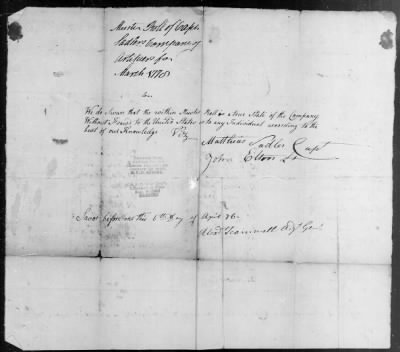 Muster Roll of Capt
Sadlers Company of
Artificers for
March 1778
We do Swear that the within Muster Roll is a True State of the Company
Without Fraud to the United States or to any Individual according to the
best of our Knowledge
Matthew Sadler Capt
John Elton Lt
Sworn before me this 6th Day of April 78
Alexr Scammell Adjt Genl